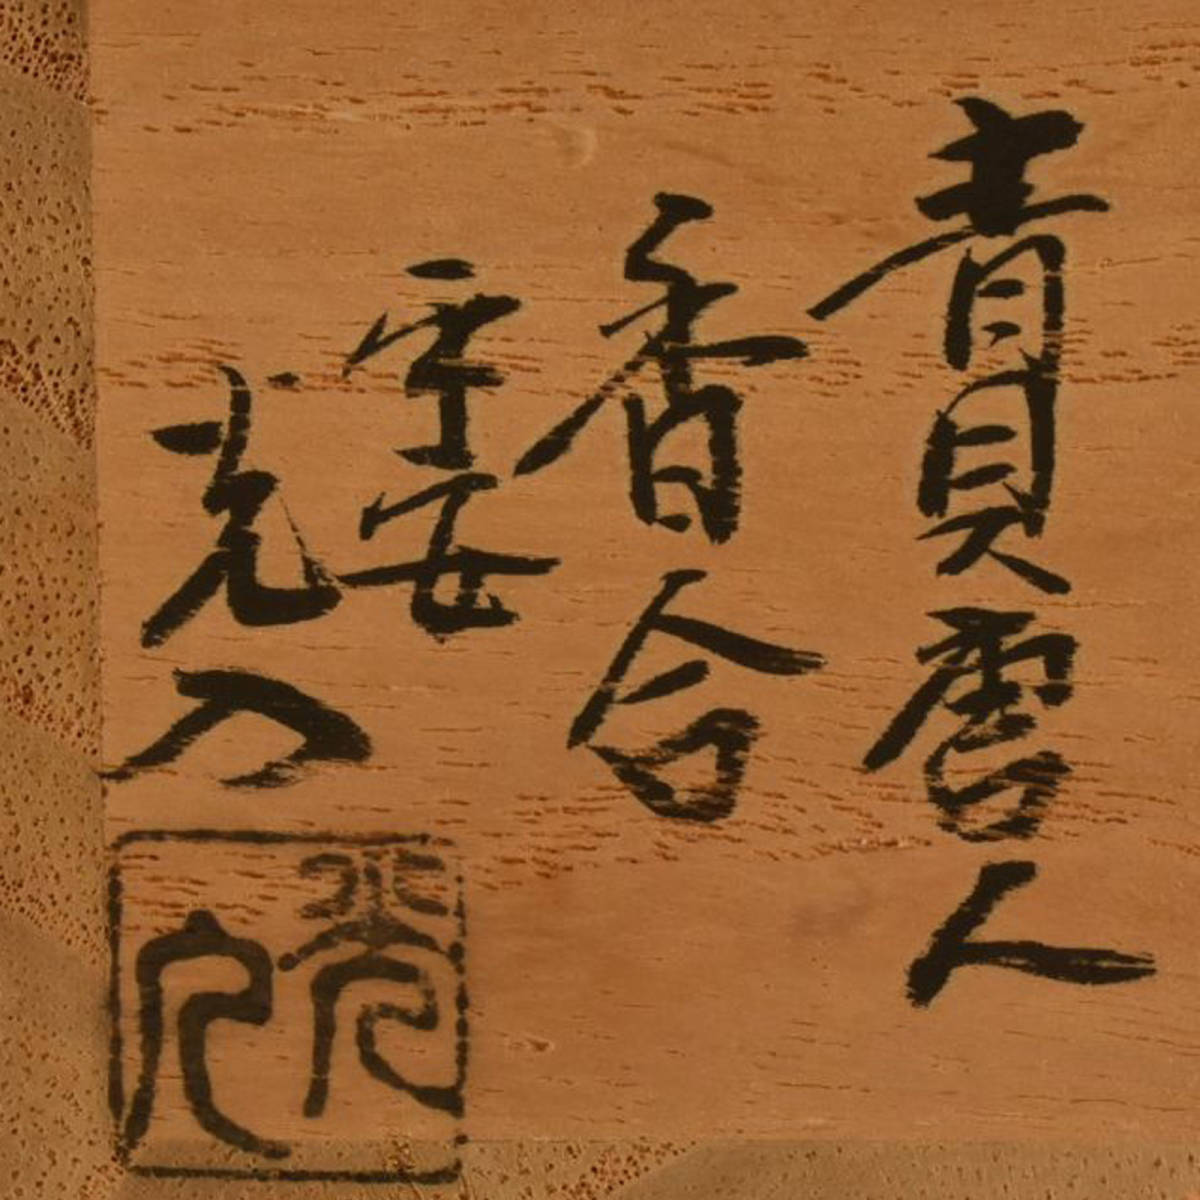 青貝唐人
香合
平安
光入